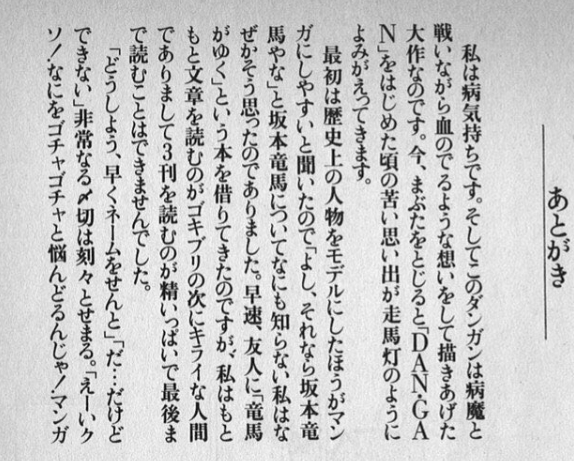 あとがき
私は病気持ちです。そしてこのダンガンは病魔と
戦いながら血のでるような想いをして描きあげた
大作なのです。今、まぶたをとじると「DAN・GA
N」をはじめた頃の苦い思い出が走馬灯のように
よみがえってきます。
最初は歴史上の人物をモデルにしたほうがマン
ガにしやすいと聞いたので「よし、それなら坂本竜
馬やな」と坂本竜馬についてなにも知らない私はな
ぜかそう思ったのでありました。早速、友人に「竜馬
がゆく」という本を借りてきたのですが、私はもと
もと文章を読むのがゴキブリの次にキライな人間
でありまして3刊を読むのが精いっぱいで最後ま
で読むことはできませんでした。
「どうしよう、早くネームをせんと」「だ…だけど
できない」非常なる〆切は刻々とせまる。「えーいク
ソ!なにをゴチャゴチャと悩んどるんじゃ!マンガ